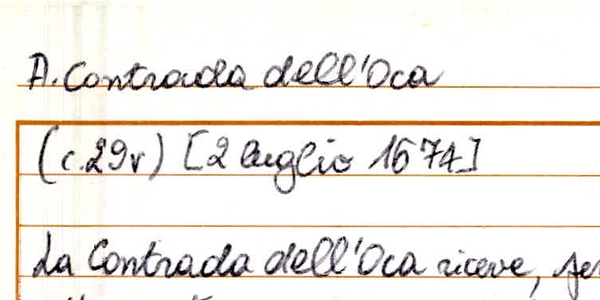 A. Contrada dell'Oca
(c.29v) [2 luglio 1674]
La Contrada dell'Oca riceve,